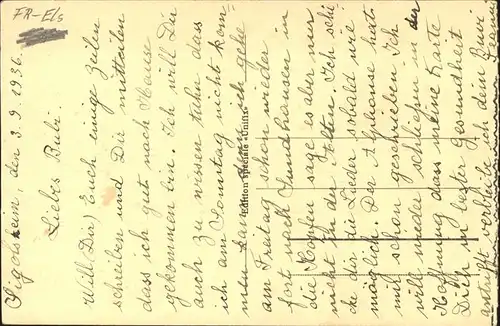 FR-Els
Sigolsheim, den 3.9.1936.
Liebes Bubi.
Will Dir) Euch einige Zeilen
schreiben und Dir mitteilen
dass ich gut nach Hause
gekommen bin. Ich will Dir
auch zu wissen tuhn dass
ich am Sonntag nicht kom-
men kann denn ich gehe
am Freitag schon wieder
fort nach Sundhausen in
die Hopfen sage es aber nur
nicht in der Ich schi-
cke dir die Lieder sobald wie
möglich. Der Alphonse hat
mir schon geschrieben Ich
will wieder schliessen in der
Hoffnung dass meine Karte
Dich in bester Gesundheit
antrifft verbleibe ich dein
Edition spéciale «Unifix»